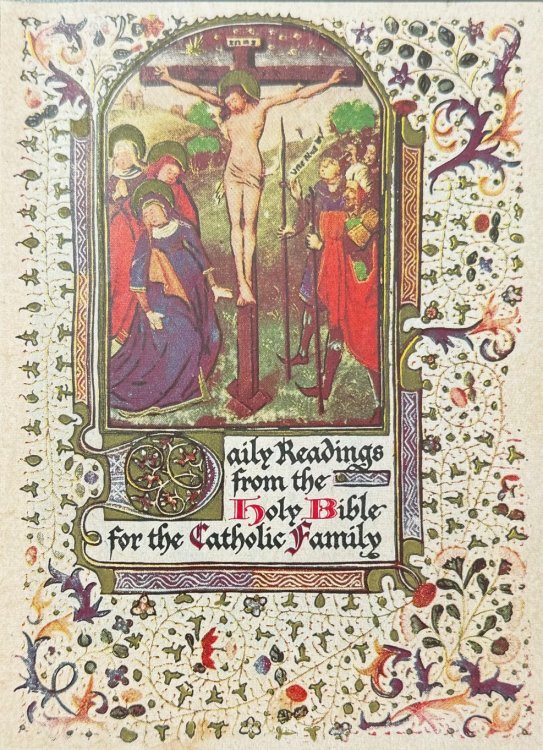 Daily Readings
from the
Holy Bible
for the Catholic Family